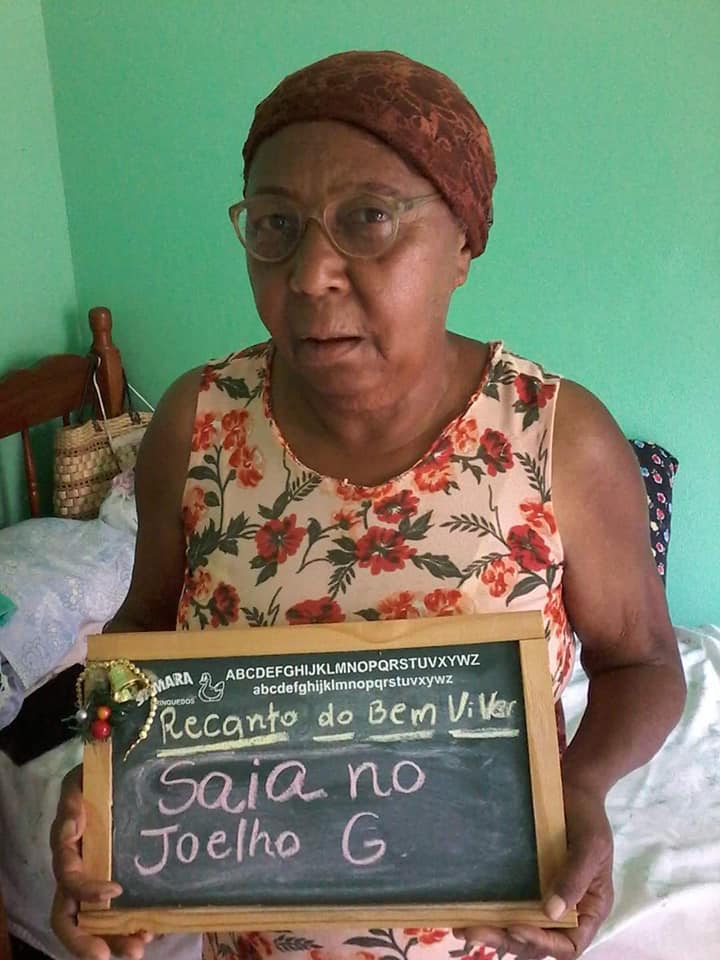 ABCDEFGHIJKLMNOPQRSTUVXYWZ
abcdefghijklmnopqrstuvxywz
Recanto do Bem Viver
Saia no
Joelho G